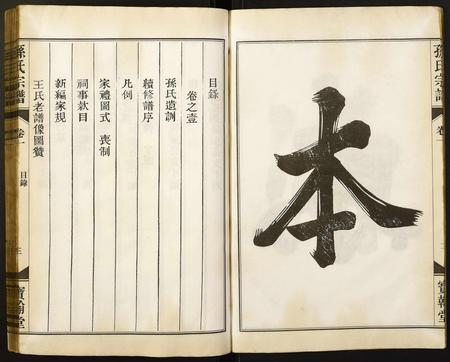 孫氏宗譜
卷一
寶翰堂
本
目錄
卷之壹
孫氏遺訓
續修譜序
凡例
家禮圖式 喪制
祠事欵目
新編家規
王氏老譜像圖贊
孫氏宗譜
卷一
目錄
三
寶翰堂